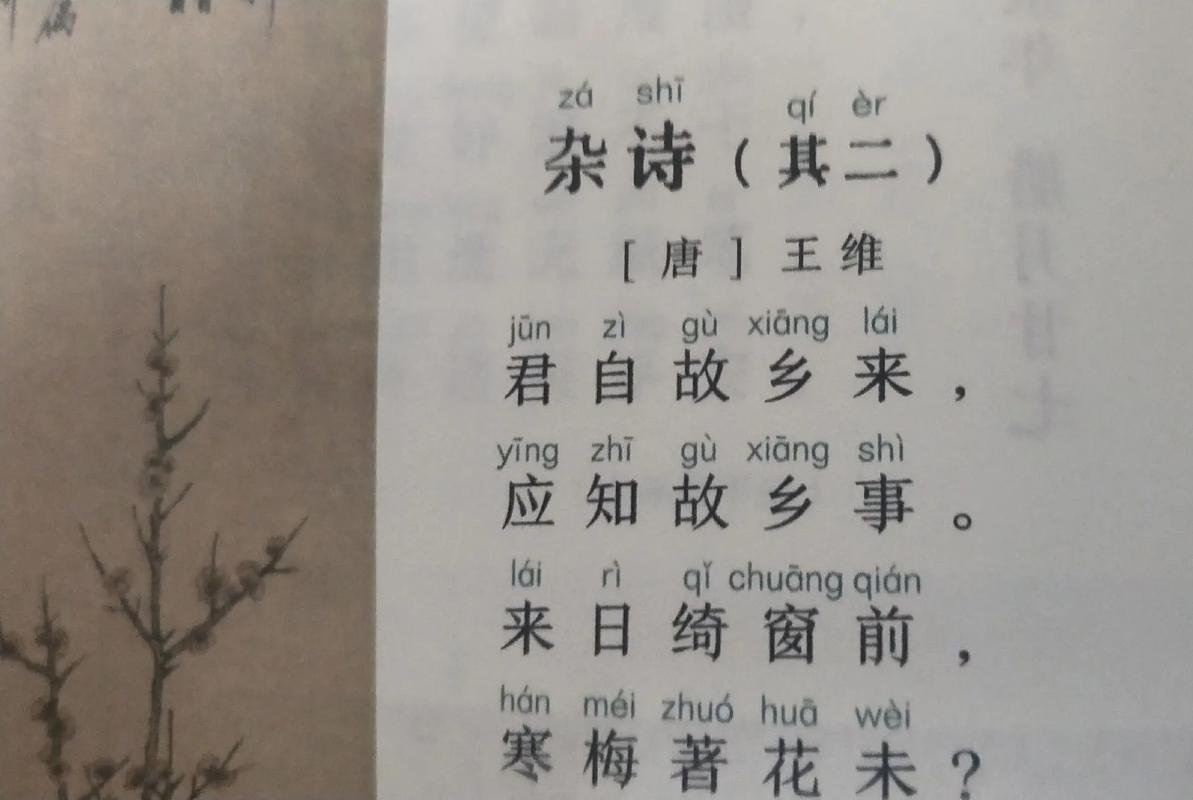 zá shī qí èr
杂诗（其二）
［唐］王维
jūn zì gù xiāng lái
君自故乡来，
yīng zhī gù xiāng shì
应知故乡事。
lái rì qǐ chuāng qián
来日绮窗前，
hán méi zhuó huā wèi
寒梅著花未？